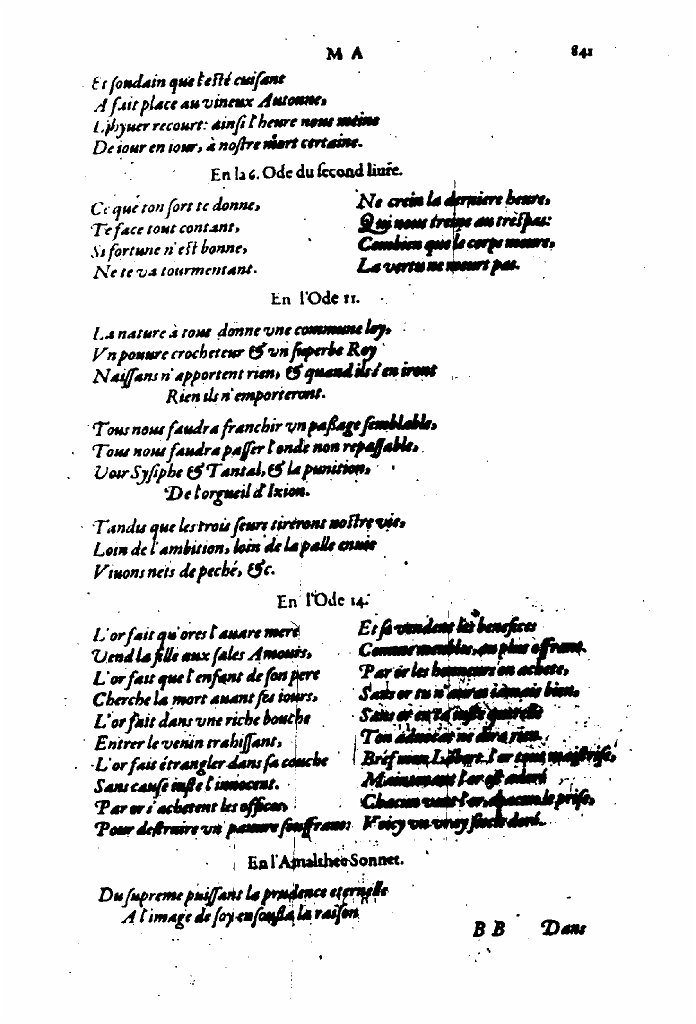 M A 841
Et soudain que l'esté cuisant
A fait place au vineux Autonne,
L'hyuer recourt: ainsi l'heure nous meine
De iour en iour, à nostre mort certaine.
En la 6. Ode du second liure.
Ce que ton sort te donne,
Te face tout contant,
Si fortune n'est bonne,
Ne te va tourmentant.
Ne crein la derniere heure,
Qui nous treine au trespas:
Combien que le corps meure,
La vertu ne meurt pas.
En l'Ode 11.
La nature à tous donne vne commune loy,
Vn pouure crocheteur & vn superbe Roy
Naissans n'apportent rien, & quand ils s'en iront
Rien ils n'emporteront.
Tous nous faudra franchir vn passage semblable,
Tous nous faudra passer l'onde non repassable,
Voir Sysiphe & Tantal, & la punition,
De l'orgueil d'Ixion.
Tandis que les trois seurs tireront nostre vie,
Loin de l'ambition, loin de la palle enuie
Viuons nets de peché, &c.
En l'Ode 14.
L'or fait qu'ores l'auare mere
Vend la fille aux sales Amours,
L'or fait que l'enfant de son pere
Cherche la mort auant ses iours,
L'or fait dans vne riche bouche
Entrer le venin trahissant,
L'or fait étrangler dans sa couche
Sans cause iuste l'innocent.
Par or s'achetent les offices,
Pour destruire vn pauure souffrant:
Et se vendent les benefices
Comme meubles, au plus offrant.
Par or les honneurs on achete,
Sans or tu n'auras iamais bien,
Sans or en ta iuste querelle
Ton aduocat ne dira rien.
Bréf mon Libert, l'or tout maistrise,
Maintenant l'or est adoré
Chacun veut l'or, chacun le prise,
Voicy vn vray siecle doré.
En l'Amalthee Sonnet.
Du supreme puissant la prudence eternelle
A l'image de soy en la raison
B B Dans